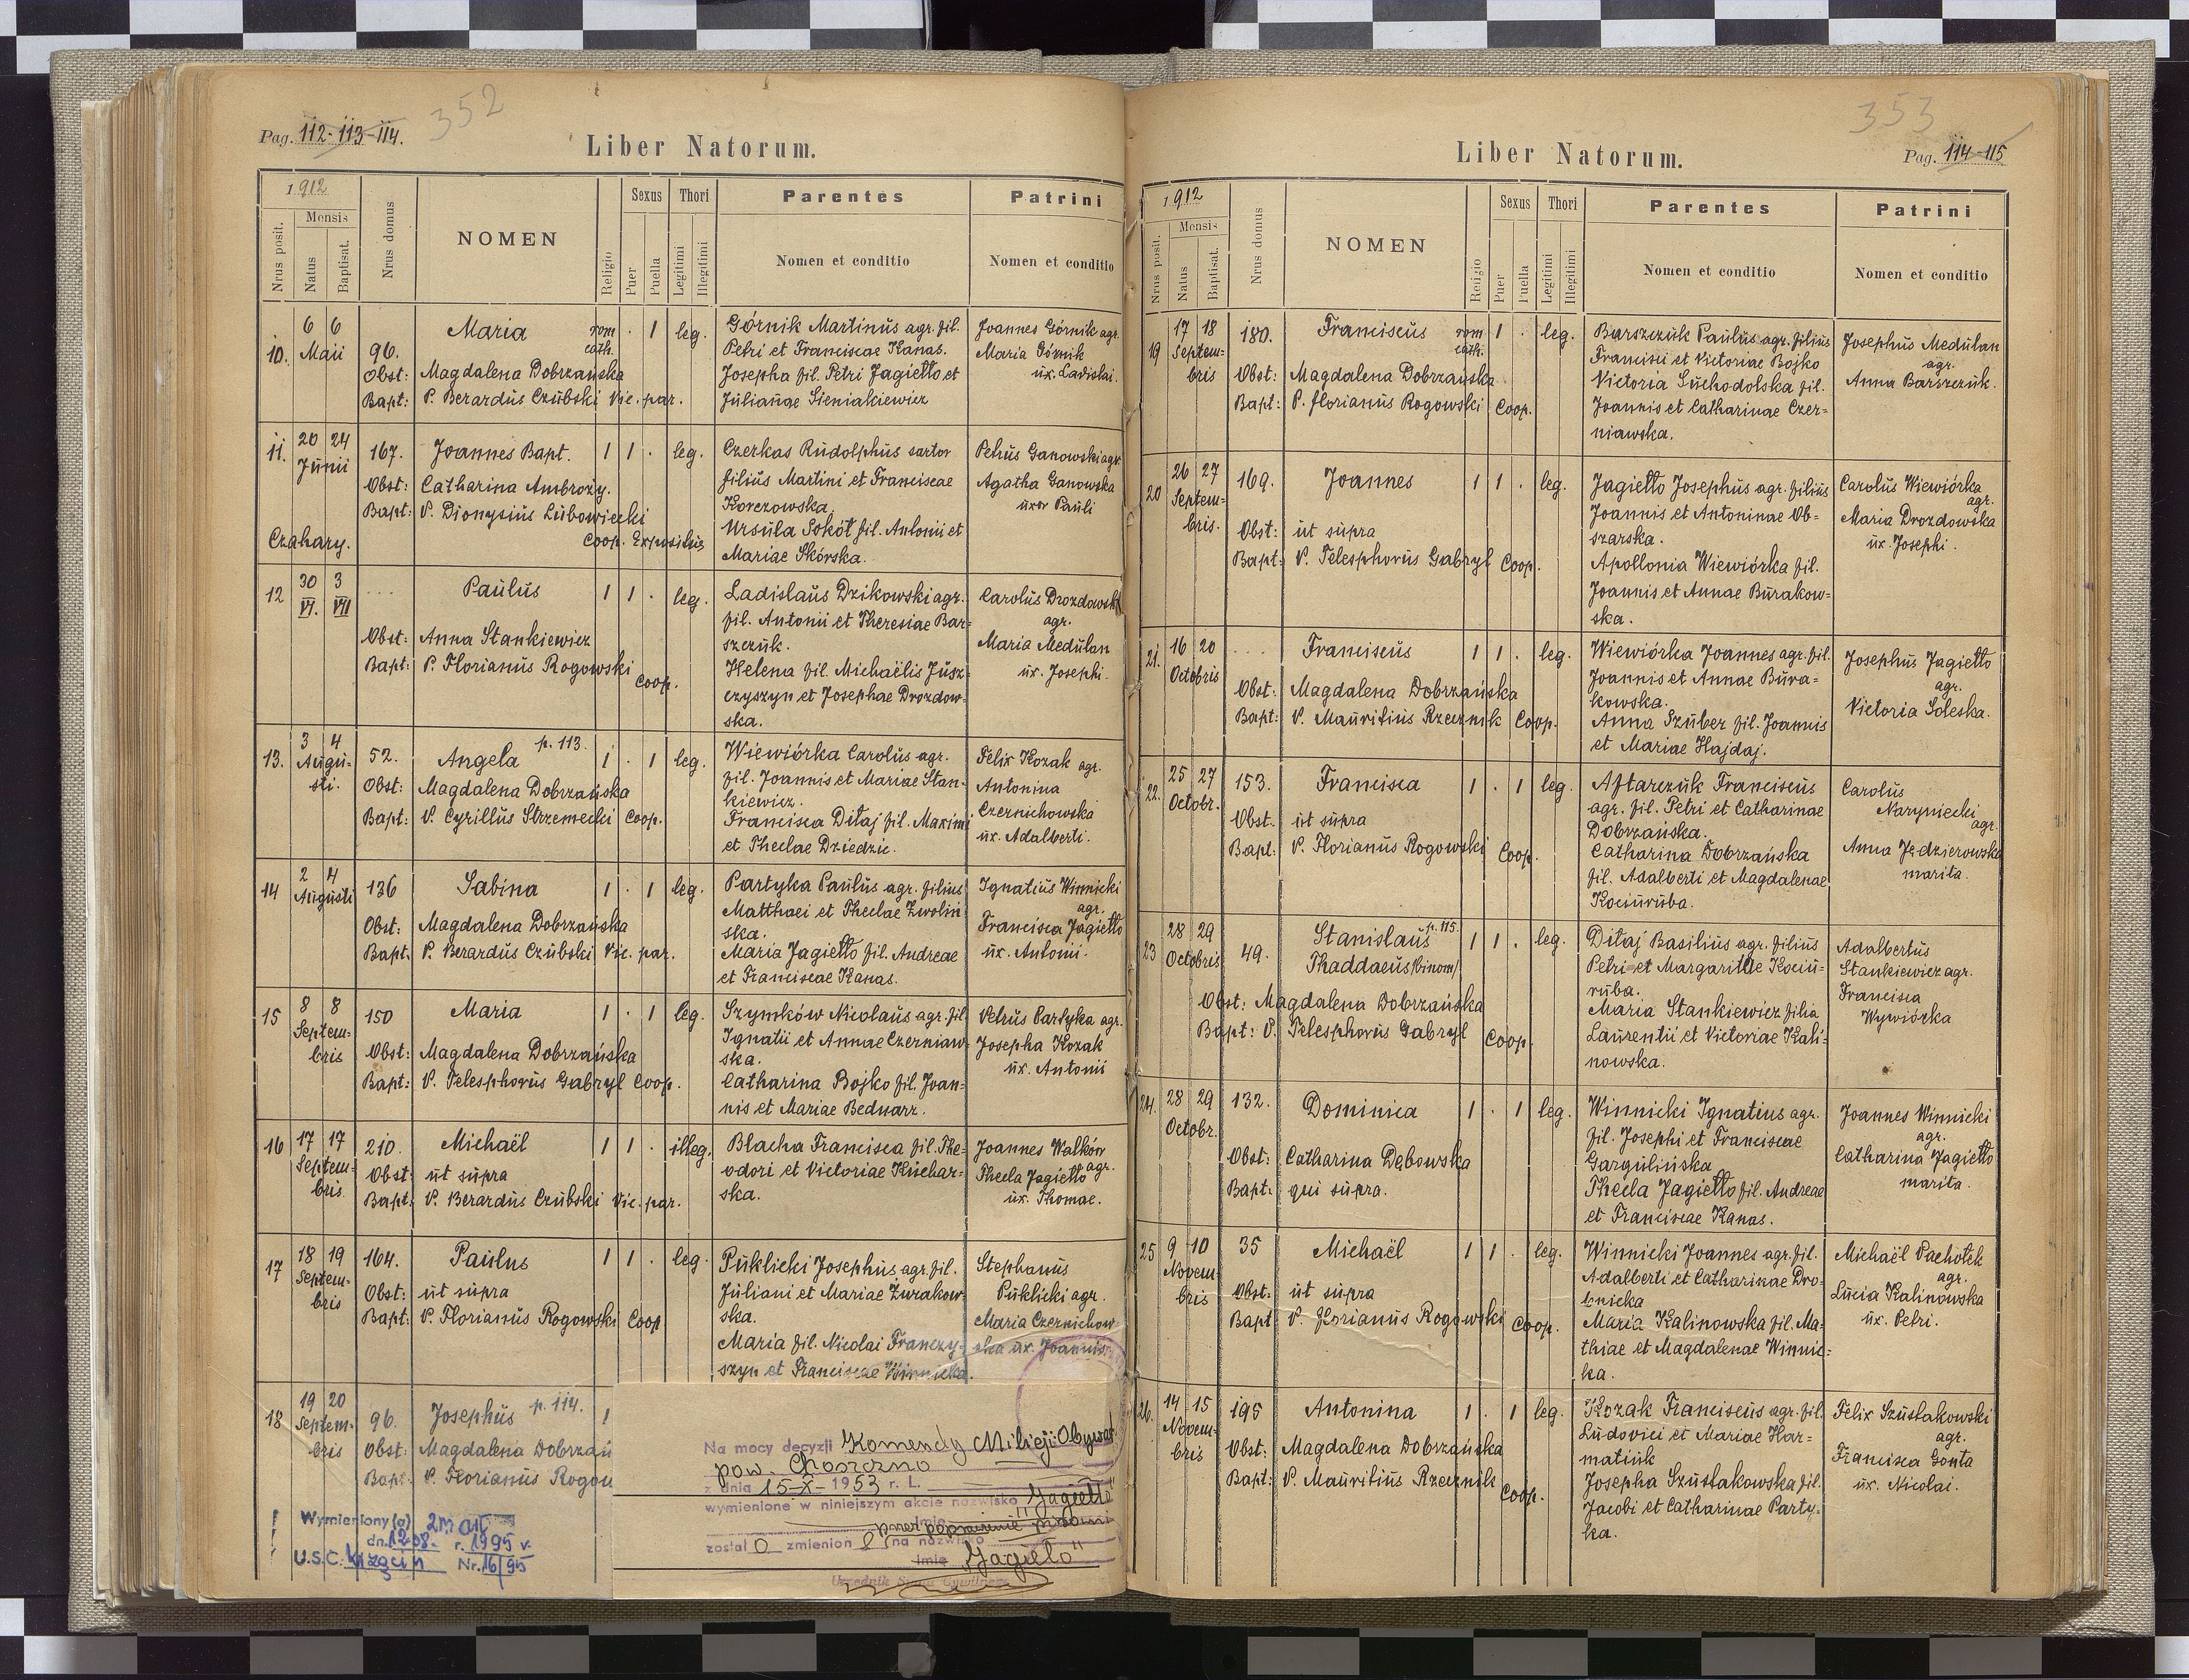 352
Pag. 112-113-114.
Liber Natorum.
1912
Nrus posit.
Mensis
Natus
Baptisat.
Nrus domus
NOMEN
Religio
Sexus
Puer
Puella
Thori
Legitimi
Illegitimi
Parentes
Nomen et conditio
Patrini
Nomen et conditio
10. 6 6 Maii 96. Maria rom cath. . 1 leg.
Obst: Magdalena Dobrzańska
Bapt: P. Berardus Czubski Vic. par.
Górnik Martinus agr. fil.
Petri et Franciscae Kanas.
Josepha fil. Petri Jagiełło et
Julianae Sieniakiewicz
Joannes Górnik agr.
Maria Górnik
ux. Ladislai.
11. 20 24 Junii 167. Joannes Bapt. 1 1 . leg.
Obst: Catharina Ambroży.
Bapt: P. Dionysius Lubowiecki
Czahary. Coop. Expositus
Czerkas Rudolphus sartor
filius Martini et Franciscae
Korczowska.
Ursula Sokół fil. Antonii et
Mariae Skórska.
Petrus Ganowski agr.
Agatha Ganowska
uxor Pauli
12 30 3 VI. VII ... Paulus 1 1 . leg.
Obst: Anna Stankiewicz
Bapt: P. Florianus Rogowski
Coop.
Ladislaus Dzikowski agr.
fil. Antonii et Theresiae Bar-
szczuk.
Helena fil. Michaëlis Jusz-
czyszyn et Josephae Drozdow-
ska.
Carolus Drozdowski
agr.
Maria Medulan
ux. Josephi.
13. 3 4 Augu-
sti. 52. Angela p. 113. 1 . 1 leg.
Obst: Magdalena Dobrzańska
Bapt: P. Cyrillus Strzemecki Coop.
Wiewiórka Carolus agr.
fil. Joannis et Mariae Stan-
kiewicz.
Francisca Ditaj fil. Maximi
et Theclae Dziedzic.
Felix Kozak agr.
Antonina
Czernichowska
ux. Adalberti.
14 2 4 Augusti 136 Sabina 1 . 1 leg.
Obst: Magdalena Dobrzańska
Bapt: P. Berardus Czubski Vic. par.
Partyka Paulus agr. filius
Matthaei et Theclae Zwoliń-
ska.
Maria Jagiełło fil. Andreae
et Franciscae Kanas.
Ignatius Winnicki
agr.
Francisca Jagiełło
ux. Antonii.
15 8 8 Septem-
bris 150 Maria 1 . 1 leg.
Obst: Magdalena Dobrzańska
Bapt: P. Telesphorus Gabryl Coop.
Szymków Nicolaus agr. fil.
Ignatii et Annae Czerniaw-
ska.
Catharina Bojko fil. Joan-
nis et Mariae Bednarz.
Petrus Partyka agr.
Josepha Kozak
ux. Antonii
16 17 17 Septem-
bris 210. Michaël 1 1 . illeg.
Obst: ut supra
Bapt: P. Berardus Czubski Vic. par.
Blacha Francisca fil. The-
odori et Victoriae Kuchar-
ska.
Joannes Walków
agr.
Thecla Jagiełło
ux. Thomae.
17 18 19 Septem-
bris 164. Paulus 1 1 . leg.
Obst: ut supra
Bapt: P. Florianus Rogowski Coop
Puklicki Josephus agr. fil.
Juliani et Mariae Żurakow-
ska.
Maria fil. Nicolai Franczy-
szyn et Franciscae Winnicka.
Stephanus
Puklicki agr.
Maria Czernichow-
ska ux. Joannis.
18 19 20 Septem-
bris 96. Josephus p. 114. 1
Obst: Magdalena Dobrzań
Bapt: P. Florianus Rogow
Wymieniony (a) zmarł
dn. 12.08. r. 1995 r.
U.S.C. Krzęcin Nr. 16/95
Na mocy decyzji Komendy Milicji Obywat.
pow. Choszczno
z dnia 15-X-1953 r. L.
wymienione w niniejszym akcie nazwisko "Jagiełło"
imię
został o zmienion e na nazwisko
imię "Jagieło"
Urzędnik Stanu Cywilnego
353
Liber Natorum.
Pag. 114-115
1912
Nrus posit.
Mensis
Natus
Baptisat.
Nrus domus
NOMEN
Religio
Sexus
Puer
Puella
Thori
Legitimi
Illegitimi
Parentes
Nomen et conditio
Patrini
Nomen et conditio
19 17 18 Septem-
bris 180. Franciscus rom cath. 1 . leg.
Obst: Magdalena Dobrzańska
Bapt: P. Florianus Rogowski Coop.
Barszczuk Paulus agr. filius
Francisci et Victoriae Bojko
Victoria Suchodolska fil.
Joannis et Catharinae Czer-
niawska.
Josephus Medulan
agr.
Anna Barszczuk.
20 26 27 Septem-
bris. 169. Joannes 1 1 . leg.
Obst: ut supra
Bapt: P. Telesphorus Gabryl Coop.
Jagiełło Josephus agr. filius
Joannis et Antoninae Ob-
szarska.
Apollonia Wiewiórka fil.
Joannis et Annae Burakow-
ska.
Carolus Wiewiórka
agr.
Maria Drozdowska
ux. Josephi.
21. 16 20 Octobris ... Franciscus 1 1 . leg.
Obst: Magdalena Dobrzańska
Bapt: P. Mauritius Rzecznik Coop.
Wiewiórka Joannes agr. fil.
Joannis et Annae Bura-
kowska.
Anna Szuber fil. Joannis
et Mariae Hajdaj.
Josephus Jagiełło
agr.
Victoria Soleska.
22. 25 27 Octobr. 153. Francisca 1 . 1 leg.
Obst: ut supra
Bapt: P. Florianus Rogowski Coop.
Aftarczuk Franciscus
agr. fil. Petri et Catharinae
Dobrzańska.
Catharina Dobrzańska
fil. Adalberti et Magdalenae
Kociuruba.
Carolus
Naryniecki
agr.
Anna Jędzierowska
marita.
23 28 29 Octobris 49. Stanislaus p. 115. 1 1 . leg.
Thaddaeus /binom/
Obst: Magdalena Dobrzańska
Bapt: P. Telesphorus Gabryl Coop.
Ditaj Basilius agr. filius
Petri et Margaritae Kociu-
ruba.
Maria Stankiewicz filia
Laurentii et Victoriae Kali-
nowska.
Adalbertus
Stankiewicz agr.
Francisca
Wywiórka
24. 28 29 Octobr. 132. Dominica 1 . 1 leg.
Obst: Catharina Dębowska
Bapt: qui supra.
Winnicki Ignatius agr.
fil. Josephi et Franciscae
Gargulińska
Thecla Jagiełło fil. Andreae
et Franciscae Kanas.
Joannes Winnicki
agr.
Catharina Jagiełło
marita.
25 9 10 Novem-
bris 35 Michaël 1 1 . leg.
Obst: ut supra
Bapt P. Florianus Rogowski Coop.
Winnicki Joannes agr. fil.
Adalberti et Catharinae Dro-
bnicka
Maria Kalinowska fil. Ma-
thiae et Magdalenae Winnic-
ka.
Michaël Pachołek
agr.
Lucia Kalinowska
ux. Petri.
26. 14 15 Novem-
bris 195 Antonina 1 . 1 leg.
Obst: Magdalena Dobrzańska
Bapt: P. Mauritius Rzecznik Coop.
Kozak Franciscus agr. fil.
Ludovici et Mariae Har-
matiuk
Josepha Szustakowska fil.
Jacobi et Catharinae Party-
ka.
Felix Szustakowski
agr.
Francisca Gonta
ux. Nicolai.